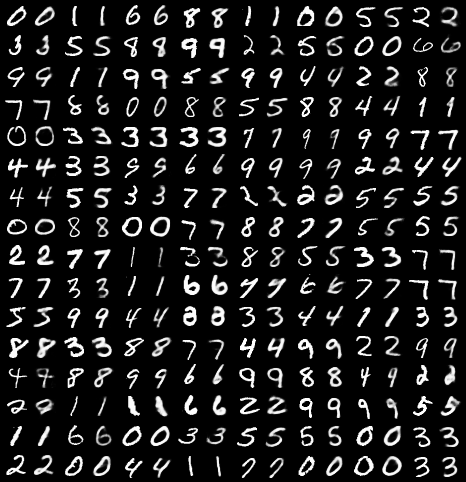 0 0 1 1 6 6 8 8 1 1 0 0 5 5 2 2
3 3 5 5 8 8 9 9 2 2 5 5 0 0 6 6
9 9 1 1 9 9 5 5 9 9 4 4 2 2 8 8
7 7 8 8 0 0 8 8 5 5 8 8 4 4 1 1
0 0 3 3 3 3 3 3 7 7 9 9 9 9 7 7
4 4 3 3 5 5 6 6 9 9 9 9 2 2 4 4
4 4 5 5 3 3 7 7 2 2 2 2 5 5 5 5
0 0 8 8 0 0 7 7 8 8 7 7 5 5 5 5
2 2 7 7 1 1 3 3 8 8 5 5 3 3 7 7
7 7 3 3 1 1 6 6 7 7 7 7 7 7
5 5 9 9 4 4 8 8 3 3 4 4 1 1 3 3
8 8 3 3 8 8 7 7 4 4 9 9 2 2 9 9
4 4 8 8 9 9 6 6 9 9 8 8 4 9 2 2
2 9 1 1 1 1 6 6 2 2 9 9 9 9 5 5
1 1 6 6 0 0 3 3 5 5 5 5 0 0 3 3
2 2 0 0 4 4 1 1 7 7 0 0 0 0 3 3